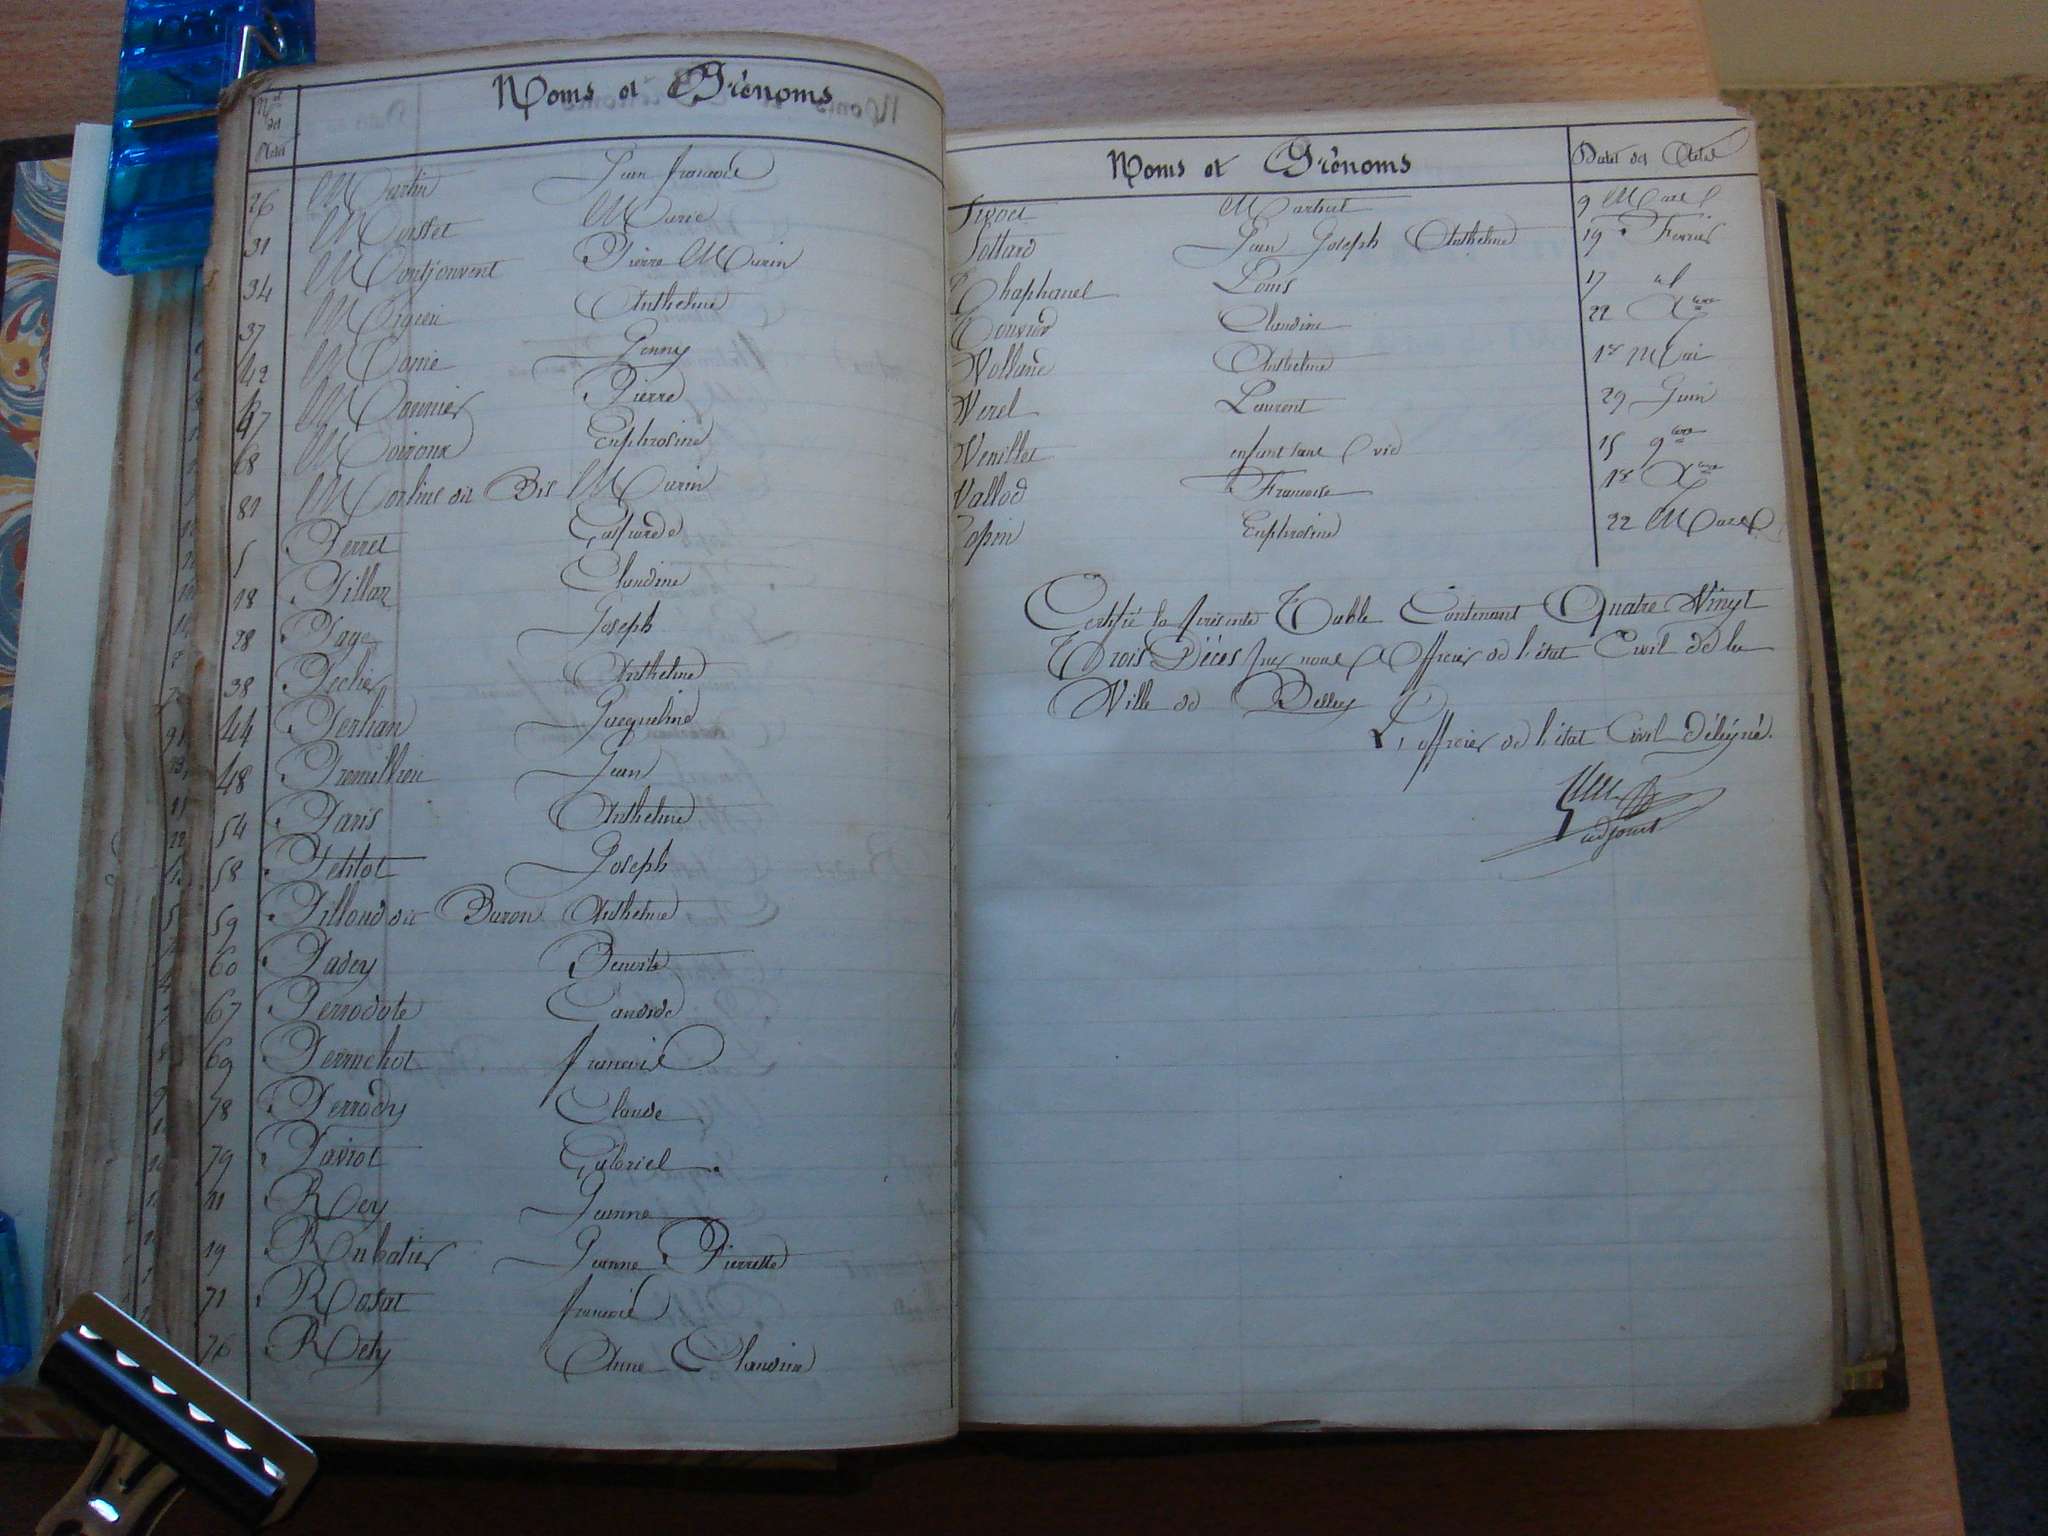 Nos des Actes
Noms et Prénoms
26 Martin Jean françois
31 Mustel Marie
34 Montjouvent Pierre Marin
37 Anthelme
42 Jenny
47 Monnier Pierre
68 Moiroux Euphrosine
81 dit Bis Marin
5 Perret Gasparde
18 Pillaz Claudine
28 Page Joseph
38 Anthelme
44 Jacqueline
48 Jean
54 Paris Anthelme
58 Petitot Joseph
59 Pilloud dit Buron Anthelme
60 Padey Benoite
67 Candide
69 Perrachot françois
78 Perrody Claude
79 Paviot Gabriel
11 Rey Jeanne
19 Rubatier Jeanne Pierrette
71 Rosat françois
76 Rety Anne Claudine
Noms et Prénoms Dates des Actes
9 Mars
Sottard Jean Joseph Anthelme 19 Fevrier
Thaphanel Louis 17 id
Claudine 22 Xbre
Vollane Anthelme 1er Mai
Verel Laurent 29 Juin
Venillet enfant sans vie 15 9bre
Vallod Françoise 1er Xbre
Euphrosine 22 Mars
Certifié la présente Table Contenant Quatre Vingt
Trois Décès par nous Officier de l'état Civil de la
Ville de Belley
L'officier de l'état Civil délégué.
adjoint